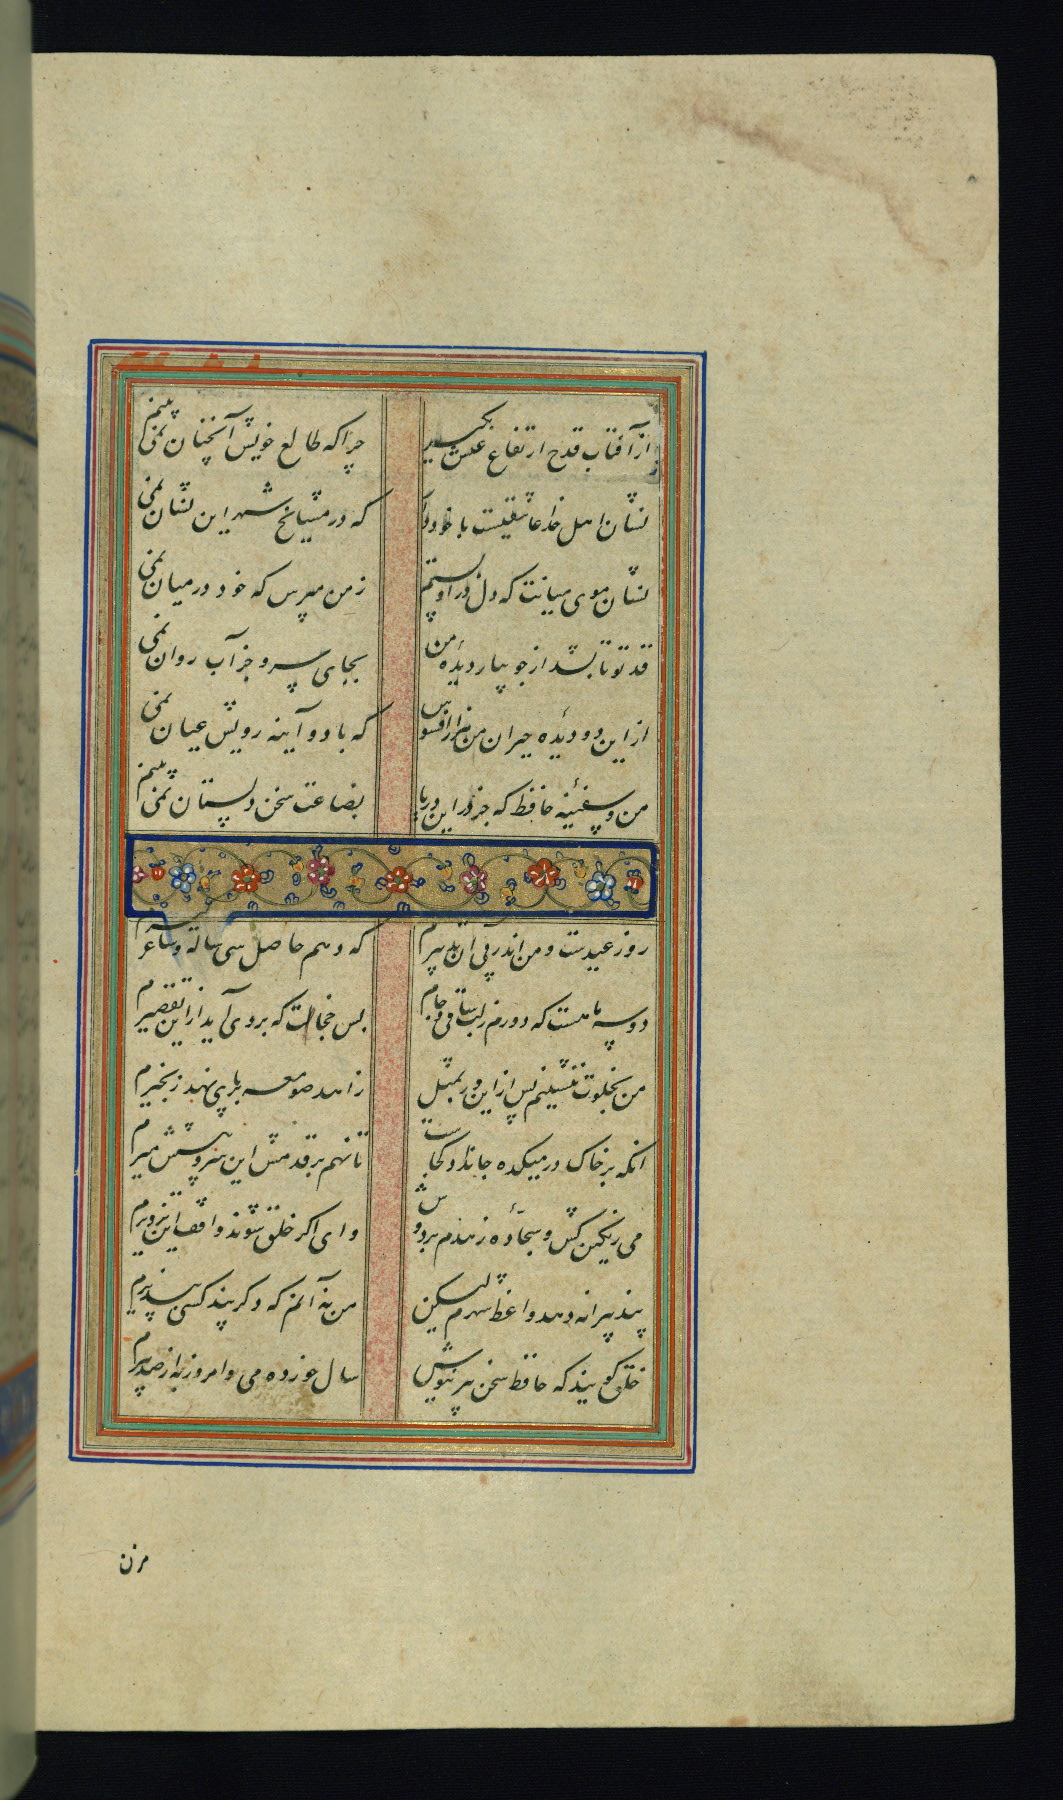 از آفتاب قدح ارتفاع عیش بگیر چرا که طالع خویش آنچنان نمی بینم
نشان اهل خدا عاشقیست با خود دار که در مشایخ شهر این نشان نمی
نشان موی میانت که دل در او بستم ز من مپرس که خود در میان نمی
قد تو تا بشد از جویبار دیدهٔ من بجای سرو جز آب روان نمی
از این دو دیدهٔ حیران من هزار افسوس که با دو آینه رویش عیان نمی
من و سفینهٔ حافظ که جز در این دریا بضاعت سخن دلستان نمی بینم
روز عیدست و من اندر پی آن تدبیرم که دهم حاصل سی ساله و ساغر
دو سه ماهست که دورم ز لب ساقی و جام بس خجالت که بروی آید از این تقصیرم
من بخلوت ننشینم پس از این ور بمثل زاهد صومعه بر پای نهد زنجیرم
انکه بر خاک در میکده جان داد کجاست تا نهم بر قدمش این سر و پیشش میرم
می زیکش و سجادهٔ زهدم بر دوش وای اگر خلق شوند واقف این تزویرم
پند پیرانه دهد واعظ شهرم لیکن من نه آنم که دگر پند کسی بپذیرم
خلق گویند که حافظ سخن پیر نیوش سال خورده می و امروز به از صد پیرم